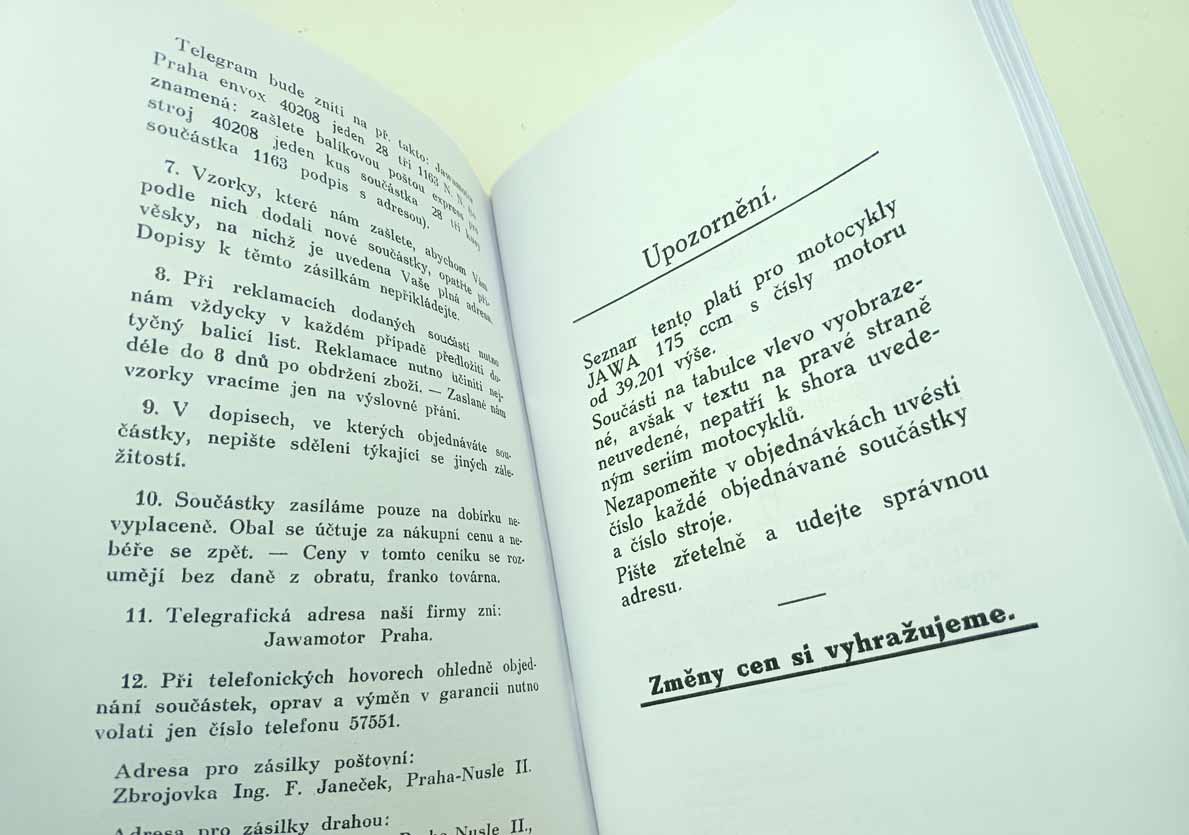 Telegram bude zníti na př. takto: Jawamotor
Praha envox 40208 jeden 28 tři 1163 N. N. (to
znamená: zašlete balíkovou poštou express pro
stroj 40208 jeden kus součástka 28 tři kusy
součástka 1163 podpis s adresou).
7. Vzorky, které nám zašlete, abychom Vám
podle nich dodali nové součástky, opatřte pří-
věsky, na nichž je uvedena Vaše plná adresa.
Dopisy k těmto zásilkám nepřikládejte.
8. Při reklamacích dodaných součástí nutno
nám vždycky v každém případě předložiti do-
tyčný balicí list. Reklamace nutno učiniti nej-
déle do 8 dnů po obdržení zboží. — Zaslané nám
vzorky vracíme jen na výslovné přání.
9. V dopisech, ve kterých objednáváte sou-
částky, nepište sdělení týkající se jiných zále-
žitostí.
10. Součástky zasíláme pouze na dobírku ne-
vyplaceně. Obal se účtuje za nákupní cenu a ne-
béře se zpět. — Ceny v tomto ceníku se roz-
umějí bez daně z obratu, franko továrna.
11. Telegrafická adresa naší firmy zní:
Jawamotor Praha.
12. Při telefonických hovorech ohledně objed-
nání součástek, oprav a výměn v garancii nutno
volati jen číslo telefonu 57551.
Adresa pro zásilky poštovní:
Zbrojovka Ing. F. Janeček, Praha-Nusle II.
Adresa pro zásilky drahou:
Nusle II.,
Upozornění.
Seznam tento platí pro motocykly
JAWA 175 ccm s čísly motoru
od 39.201 výše.
Součásti na tabulce vlevo vyobraze-
né, avšak v textu na pravé straně
neuvedené, nepatří k shora uvede-
ným seriím motocyklů.
Nezapomeňte v objednávkách uvésti
číslo každé objednávané součástky
a číslo stroje.
Pište zřetelně a udejte správnou
adresu.
Změny cen si vyhražujeme.